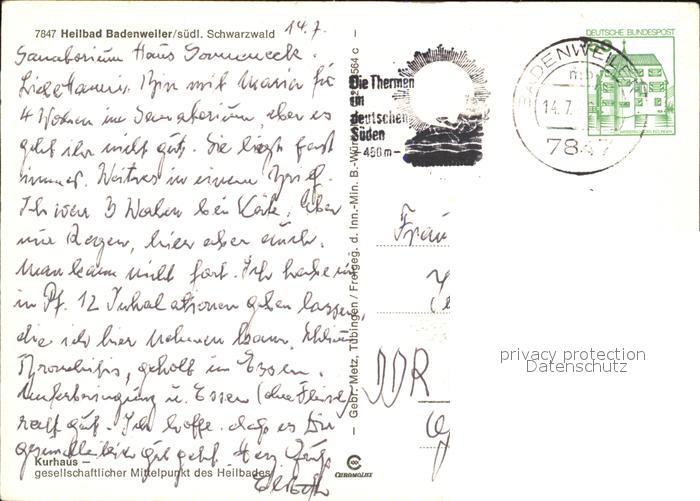 7847 Heilbad Badenweiler/südl. Schwarzwald
14.7.
Sanatorium Haus Sonneneck.
Liebe Hanni. Bin mit Maria für
4 Wochen im Sanatorium, aber es
geht ihr nicht gut. Sie liegt fast
immer. Weitres in einem Brief.
Ich war 3 Wochen bei Käte. Aber
nur Regen, hier aber auch.
Man kann nicht fort. Ich habe mir
in Pf. 12 Inhalationen geben lassen,
die ich hier nehmen kann.
Bronchitis, geholt in Essen.
Unterbringung u. Essen (ohne Fleisch)
recht gut. Ich hoffe, dass es Dir
gesundheitlich gut geht. Herz. Grüße
Kurhaus –
gesellschaftlicher Mittelpunkt des Heilbades
Gebr. Metz, Tübingen / Freigeg. d. Inn.-Min. B.-Würt.
564 c
CHROMOLUX
Die Thermen
im
deutschen
Süden
- 450 m -
BADENWEILER
14.7.
7847
DEUTSCHE BUNDESPOST
Frau
DDR
privacy protection
Datenschutz